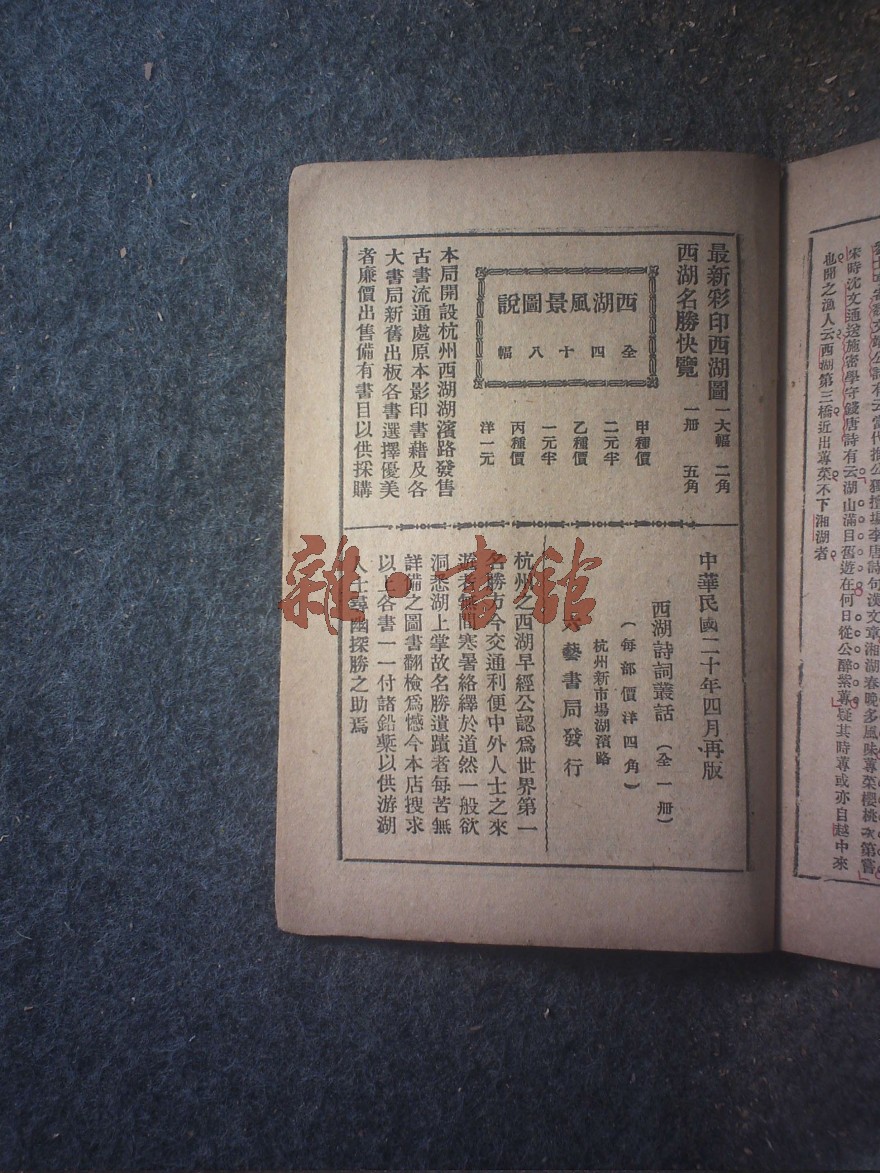 最新彩印西湖圖 一大幅 二角
西湖名勝快覽 一册 五角
西湖風景圖說
全四十八幅
甲種價
二元半
乙種價
一元半
丙種價
洋一元
本局開設杭州西湖湖濱路發售
古書流通處原本影印書藉及各
大書局新舊出板各書選擇優美
者廉價出售備有書目以供採購
中華民國二十年四月再版
西湖詩詞叢話（全一册）
（每部價洋四角）
杭州新市場湖濱路
六藝書局發行
杭州之西湖早經公認爲世界第一
名勝方今交通利便中外人士之來
遊者無間寒暑絡繹於道然一般欲
洞悉湖上掌故名勝遺蹟者每苦無
詳備之圖書翻檢爲憾今本店搜求
以上各書一一付諸鉛槧以供游湖
人士尋幽探勝之助焉
宋時沈文通送施密學守錢唐詩有云湖山滿目舊遊在何日從公醉紫蓴疑其時蓴或亦自越中來
也開之漁人云西湖第三橋近出蓴菜不下湘湖者
雜·書館